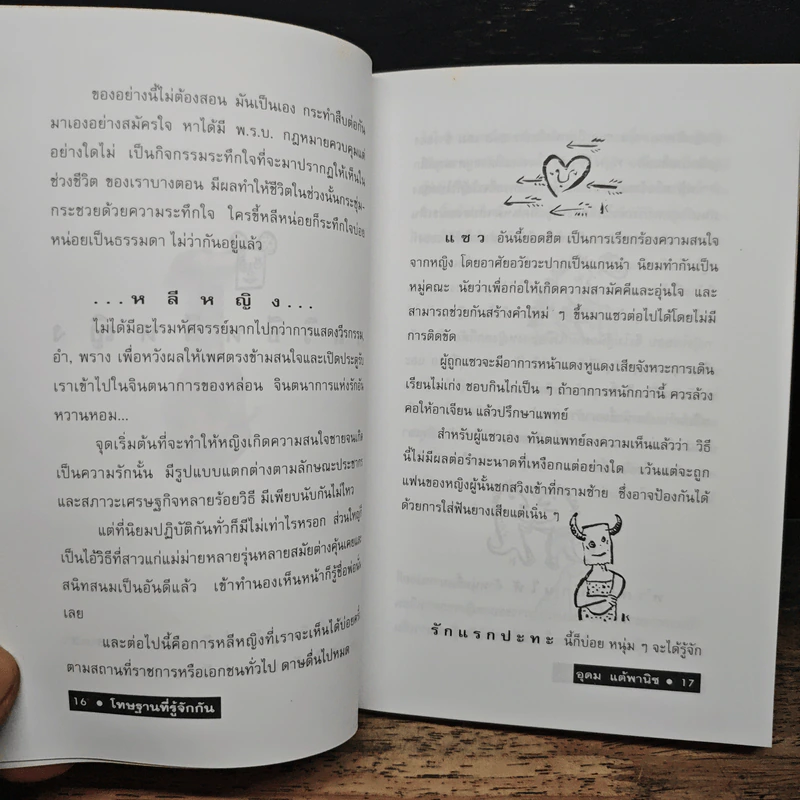 ของอย่างนี้ไม่ต้องสอน มันเป็นเอง กระทำสืบต่อกัน
มาเองอย่างสมัครใจ หาได้มี พ.ร.บ. กฎหมายควบคุมแต่
อย่างใดไม่ เป็นกิจกรรมระทึกใจที่จะมาปรากฏให้เห็นใน
ช่วงชีวิต ของเราบางตอน มีผลทำให้ชีวิตในช่วงนั้นกระชุ่ม-
กระชวยด้วยความระทึกใจ ใครขี้หลีหน่อยก็ระทึกใจบ่อย
หน่อยเป็นธรรมดา ไม่ว่ากันอยู่แล้ว
...ห ลี ห ญิ ง...
ไม่ได้มีอะไรมหัศจรรย์มากไปกว่าการแสดงวีรกรรม,
อำ, พราง เพื่อหวังผลให้เพศตรงข้ามสนใจและเปิดประตูรับ
เราเข้าไปในจินตนาการของหล่อน จินตนาการแห่งรักอัน
หวานหอม...
จุดเริ่มต้นที่จะทำให้หญิงเกิดความสนใจชายจนเกิด
เป็นความรักนั้น มีรูปแบบแตกต่างตามลักษณะประชากร
และสภาวะเศรษฐกิจหลายร้อยวิธี มีเพียบนับกันไม่ไหว
แต่ที่นิยมปฏิบัติกันทั่วก็มีไม่เท่าไรหรอก ส่วนใหญ่ก็
เป็นไอ้วิธีที่สาวแก่แม่ม่ายหลายรุ่นหลายสมัยต่างคุ้นเคยและ
สนิทสนมเป็นอันดีแล้ว เข้าทำนองเห็นหน้าก็รู้ชื่อพ่อนั่น
เลย
และต่อไปนี้คือการหลีหญิงที่เราจะเห็นได้บ่อยครั้ง
ตามสถานที่ราชการหรือเอกชนทั่วไป ดาษดื่นไปหมด
16 • โทษฐานที่รู้จักกัน
แ ซ ว อันนี้ยอดฮิต เป็นการเรียกร้องความสนใจ
จากหญิง โดยอาศัยอวัยวะปากเป็นแกนนำ นิยมทำกันเป็น
หมู่คณะ นัยว่าเพื่อก่อให้เกิดความสามัคคีและอุ่นใจ และ
สามารถช่วยกันสร้างคำใหม่ ๆ ขึ้นมาแซวต่อไปได้โดยไม่มี
การติดขัด
ผู้ถูกแซวจะมีอาการหน้าแดงหูแดงเสียจังหวะการเดิน
เรียนไม่เก่ง ชอบกินไก่เป็น ๆ ถ้าอาการหนักกว่านี้ ควรล้วง
คอให้อาเจียน แล้วปรึกษาแพทย์
สำหรับผู้แซวเอง ทันตแพทย์ลงความเห็นแล้วว่า วิธี
นี้ไม่มีผลต่อรำมะนาดที่เหงือกแต่อย่างใด เว้นแต่จะถูก
แฟนของหญิงผู้นั้นชกสวิงเข้าที่กรามซ้าย ซึ่งอาจป้องกันได้
ด้วยการใส่ฟันยางเสียแต่เนิ่น ๆ
รั ก แ ร ก ป ะ ท ะ นี้ก็บ่อย หนุ่ม ๆ จะได้รู้จัก
อุดม แต้พานิช • 17